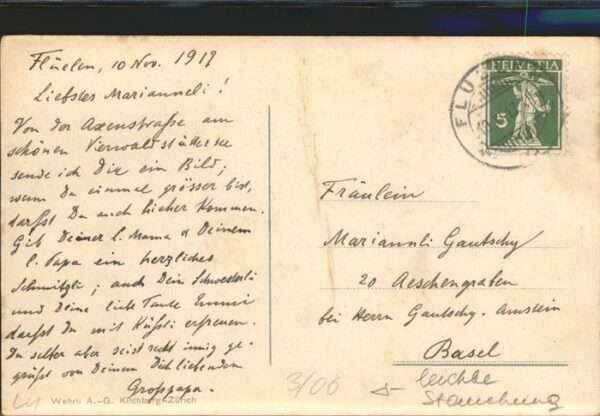 Flüelen, 10 Nov. 1917
Liebstes Marianneli!
Von der Axenstraße am
schönen Vierwaldstättersee
sende ich Dir ein Bild;
wenn Du einmal grösser bist,
darfst Du auch hieher kommen.
Gib Deiner l. Mama & Deinem
l. Papa ein herzliches
Schmützli; auch Dein Schwesterli
und Deine liebe Tante Emmi
darfst Du mit Küßli erfreuen.
Du selber aber seist recht innig ge-
grüßt von Deinem Dich liebenden
Großpapa.
Wehrli A.-G. Kilchberg-Zürich
HELVETIA
5
FLÜ
Fräulein
Mariannli Gautschy
20 Aeschengraben
bei Herrn Gautschy-Arnstein
Basel
3/00
leichte
Stauchung